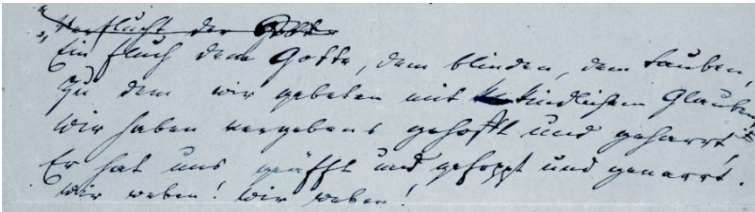 „Verflucht der Gott
„Ein Fluch dem Gotte, dem blinden, dem tauben,
Zu dem wir gebeten mit kindlichem Glauben
Wir haben vergebens gehofft und geharrt,
Er hat uns geäfft und gefoppt und genarrt.
Wir weben! Wir weben!